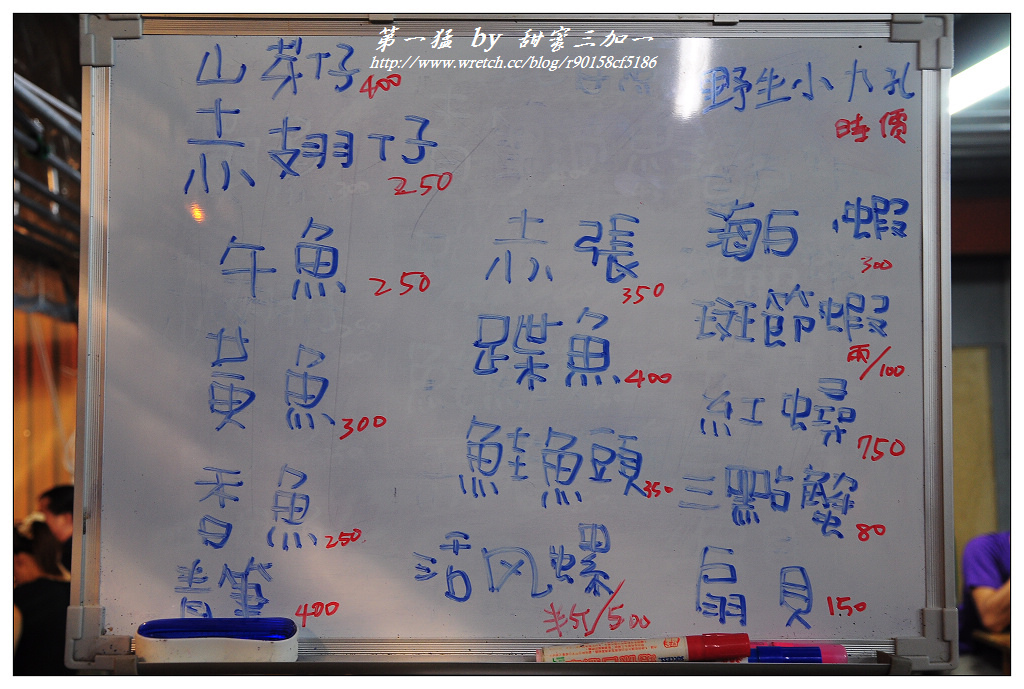 第一猛 by 甜蜜三加一
http://www.wretch.cc/blog/r90158cf5186
山芽仔 400
赤翅仔 250
午魚 250
黄魚 300
香魚 250
青筆 400
赤張 350
蹀魚 400
鮭魚頭 350
活风螺 半斤/500
野生小九孔 時價
海虾 300
斑節蝦 兩/100
紅蟳 750
三點蟹 80
扇貝 150